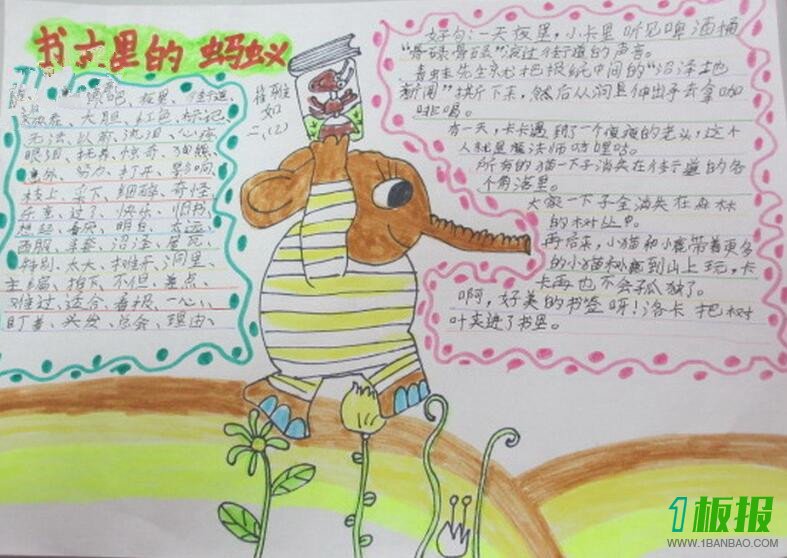 书本里的蚂蚁
夜里、街道、
大胆、红色、标记、
无法、以前、沉思、心疼
眼泪、托着、惊奇、孤独、
意外、努力、打开、影响
枝上、采下、细碎、奇怪
乐意、过了、快乐、旧书、
想经、春厌、明白、太远、
西服、手套、沼泽、
特别、太大、推开、洞里、
主编、拍下、不但、差点、
难过、适合、看报、一心、
盯着、兴发、总会、理由、
崔雅
如
二、(2)
好句:一天夜里,小卡里听见啤酒桶
“骨碌骨碌”滚过街道的声音。
青蛙先生就把报纸中间的“沼泽地
新闻”拆下来,然后从洞里伸出手去拿咖
啡喝。
有一天,卡卡遇到了一个瘦瘦的老头,这个
人就是魔法师咕哩咕。
所有的猫一下子消失在街道的各
个角落里。
大家一下子全消失在森林
的树丛中。
再后来,小猫和小鹿带着更多
的小猫和小鹿到山上玩,卡
卡再也不会孤独了。
啊,好美的书签呀!洛卡把树
叶夹进了书里。
1板报
WWW.1BANBAO.COM